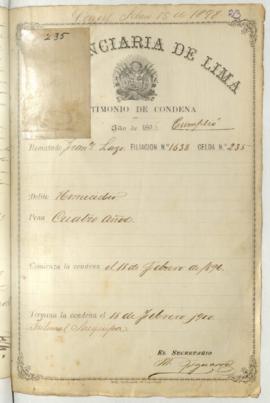 235
NCIARIA DE LIMA
TIMONIO DE CONDENA
Año de 189 Cumplió
Rematado Franco Lazo FILIACION N.º 1638 CELDA N.º 235
Delito Homicidio
Pena Cuatro Años
Comienza la condena el 18 de Febrero de 1896
Termina la condena el 18 de Febrero 1900
Tribunal Arequipa
EL SECRETARIO